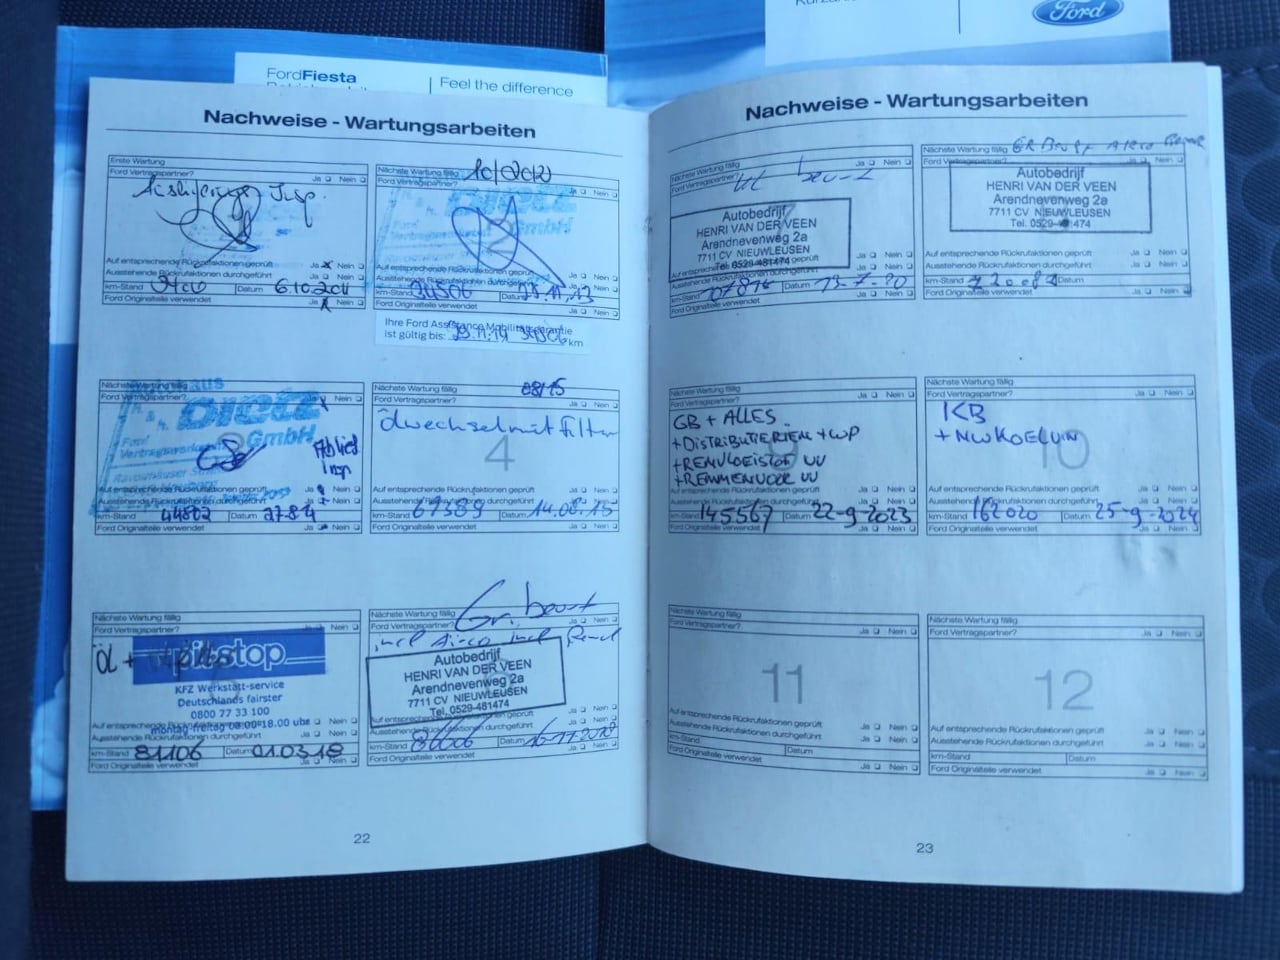 Kurzan
Ford
FordFiesta
Feel the difference
Nachweise - Wartungsarbeiten
Erste Wartung
Ford Vertragspartner? Ja Nein
Insp.
Auf entsprechende Rückrufaktionen geprüft Ja Nein
Ausstehende Rückrufaktionen durchgeführt Ja Nein
km-Stand Datum
Ford Originalteile verwendet Ja Nein
Nächste Wartung fällig
Ford Vertragspartner? Ja Nein
Dietz
GmbH
Auf entsprechende Rückrufaktionen geprüft Ja Nein
Ausstehende Rückrufaktionen durchgeführt Ja Nein
km-Stand Datum
Ford Originalteile verwendet Ja Nein
Ihre Ford Assistance Mobilitätsgarantie
ist gültig bis: km
Nächste Wartung fällig
Ford Vertragspartner? Ja Nein
Dietz
GmbH
Auf entsprechende Rückrufaktionen geprüft Ja Nein
Ausstehende Rückrufaktionen durchgeführt Ja Nein
km-Stand 44802 Datum
Ford Originalteile verwendet Ja Nein
Nächste Wartung fällig 08/15
Ford Vertragspartner? Ja Nein
Ölwechsel mit Filter
4
Auf entsprechende Rückrufaktionen geprüft Ja Nein
Ausstehende Rückrufaktionen durchgeführt Ja Nein
km-Stand 67389 Datum 14.08.15
Ford Originalteile verwendet Ja Nein
Nächste Wartung fällig
Ford Vertragspartner? Ja Nein
Öl +
pitstop
KFZ Werkstatt-service
Deutschlands fairster
0800 77 33 100
montag-freitag 08.00-18.00 uhr
Auf entsprechende Rückrufaktionen geprüft Ja Nein
Ausstehende Rückrufaktionen durchgeführt Ja Nein
km-Stand 81106 Datum 01.03.18
Ford Originalteile verwendet Ja Nein
Nächste Wartung fällig Gr. beurt
Ford Vertragspartner? Ja Nein
incl Airco incl
Autobedrijf
HENRI VAN DER VEEN
Arendnevenweg 2a
7711 CV NIEUWLEUSEN
Tel. 0529-481474
Auf entsprechende Rückrufaktionen geprüft Ja Nein
Ausstehende Rückrufaktionen durchgeführt Ja Nein
km-Stand Datum 16-11-2018
Ford Originalteile verwendet Ja Nein
22
Nachweise - Wartungsarbeiten
Nächste Wartung fällig Ja Nein
Ford Vertragspartner? beurt
Autobedrijf
HENRI VAN DER VEEN
Arendnevenweg 2a
7711 CV NIEUWLEUSEN
Tel. 0529-481474
Auf entsprechende Rückrufaktionen geprüft Ja Nein
Ausstehende Rückrufaktionen durchgeführt Ja Nein
km-Stand Datum
Ford Originalteile verwendet Ja Nein
Nächste Wartung fällig GR Beurt AIRCO
Ford Vertragspartner? Ja Nein
Autobedrijf
HENRI VAN DER VEEN
Arendnevenweg 2a
7711 CV NIEUWLEUSEN
Tel. 0529-481474
Auf entsprechende Rückrufaktionen geprüft Ja Nein
Ausstehende Rückrufaktionen durchgeführt Ja Nein
km-Stand Datum
Ford Originalteile verwendet Ja Nein
Nächste Wartung fällig
Ford Vertragspartner? Ja Nein
GB + ALLES
+ DISTRIBUTIERIEM + WP
+ REMVLOEISTOF VV
+ REMMEN VOOR VV
9
Auf entsprechende Rückrufaktionen geprüft Ja Nein
Ausstehende Rückrufaktionen durchgeführt Ja Nein
km-Stand 145567 Datum 22-9-2023
Ford Originalteile verwendet Ja Nein
Nächste Wartung fällig
Ford Vertragspartner? Ja Nein
KB
+ NW KOELVIN
10
Auf entsprechende Rückrufaktionen geprüft Ja Nein
Ausstehende Rückrufaktionen durchgeführt Ja Nein
km-Stand 162020 Datum 25-9-2024
Ford Originalteile verwendet Ja Nein
Nächste Wartung fällig
Ford Vertragspartner? Ja Nein
11
Auf entsprechende Rückrufaktionen geprüft Ja Nein
Ausstehende Rückrufaktionen durchgeführt Ja Nein
km-Stand Datum
Ford Originalteile verwendet Ja Nein
Nächste Wartung fällig
Ford Vertragspartner? Ja Nein
12
Auf entsprechende Rückrufaktionen geprüft Ja Nein
Ausstehende Rückrufaktionen durchgeführt Ja Nein
km-Stand Datum
Ford Originalteile verwendet Ja Nein
23